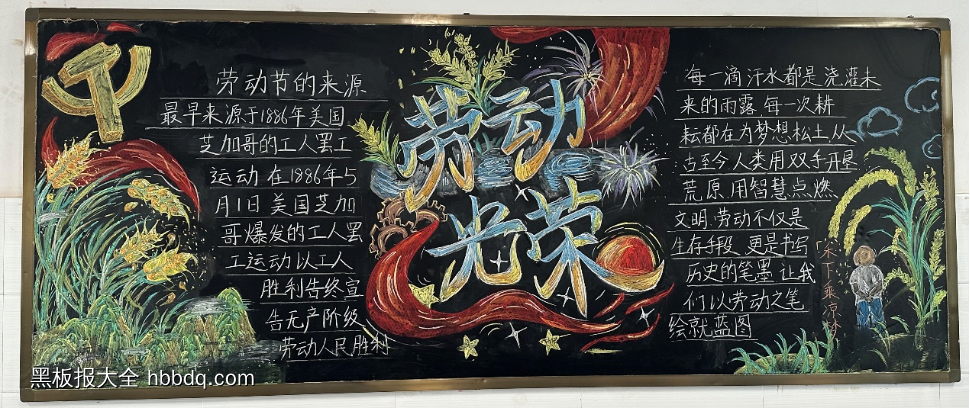 劳动节的来源
最早来源于1886年美国
芝加哥的工人罢工
运动 在1886年5
月1日 美国芝加
哥爆发的工人罢
工运动以工人
胜利告终宣
告无产阶级
劳动人民胜利
劳动
光荣
每一滴汗水都是浇灌未
来的雨露 每一次耕
耘都在为梦想松土从
古至今人类用双手开垦
荒原 用智慧点燃
文明.劳动不仅是
生存手段 更是书写
历史的笔墨 让我
们以劳动之笔
绘就蓝图
「禾下乘凉梦
黑板报大全 hbbdq.com